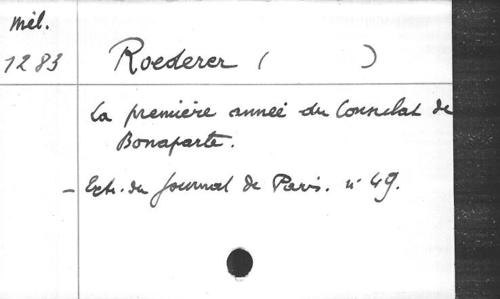 Mél.
1283 Roederer ( )
La première année du Consulat de
Bonaparte.
- Extr. du Journal de Paris. n° 49.